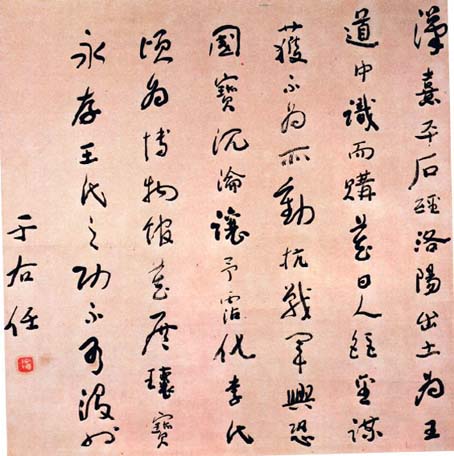 漢熹平石經洛陽出土為王
道中識而購藏日人鉅金謀
獲不為所動抗戰軍興恐
國寶沉淪讓予霑化李氏
頃為博物館藏庶瓌寶
永存王氏之功不可沒也
于右任